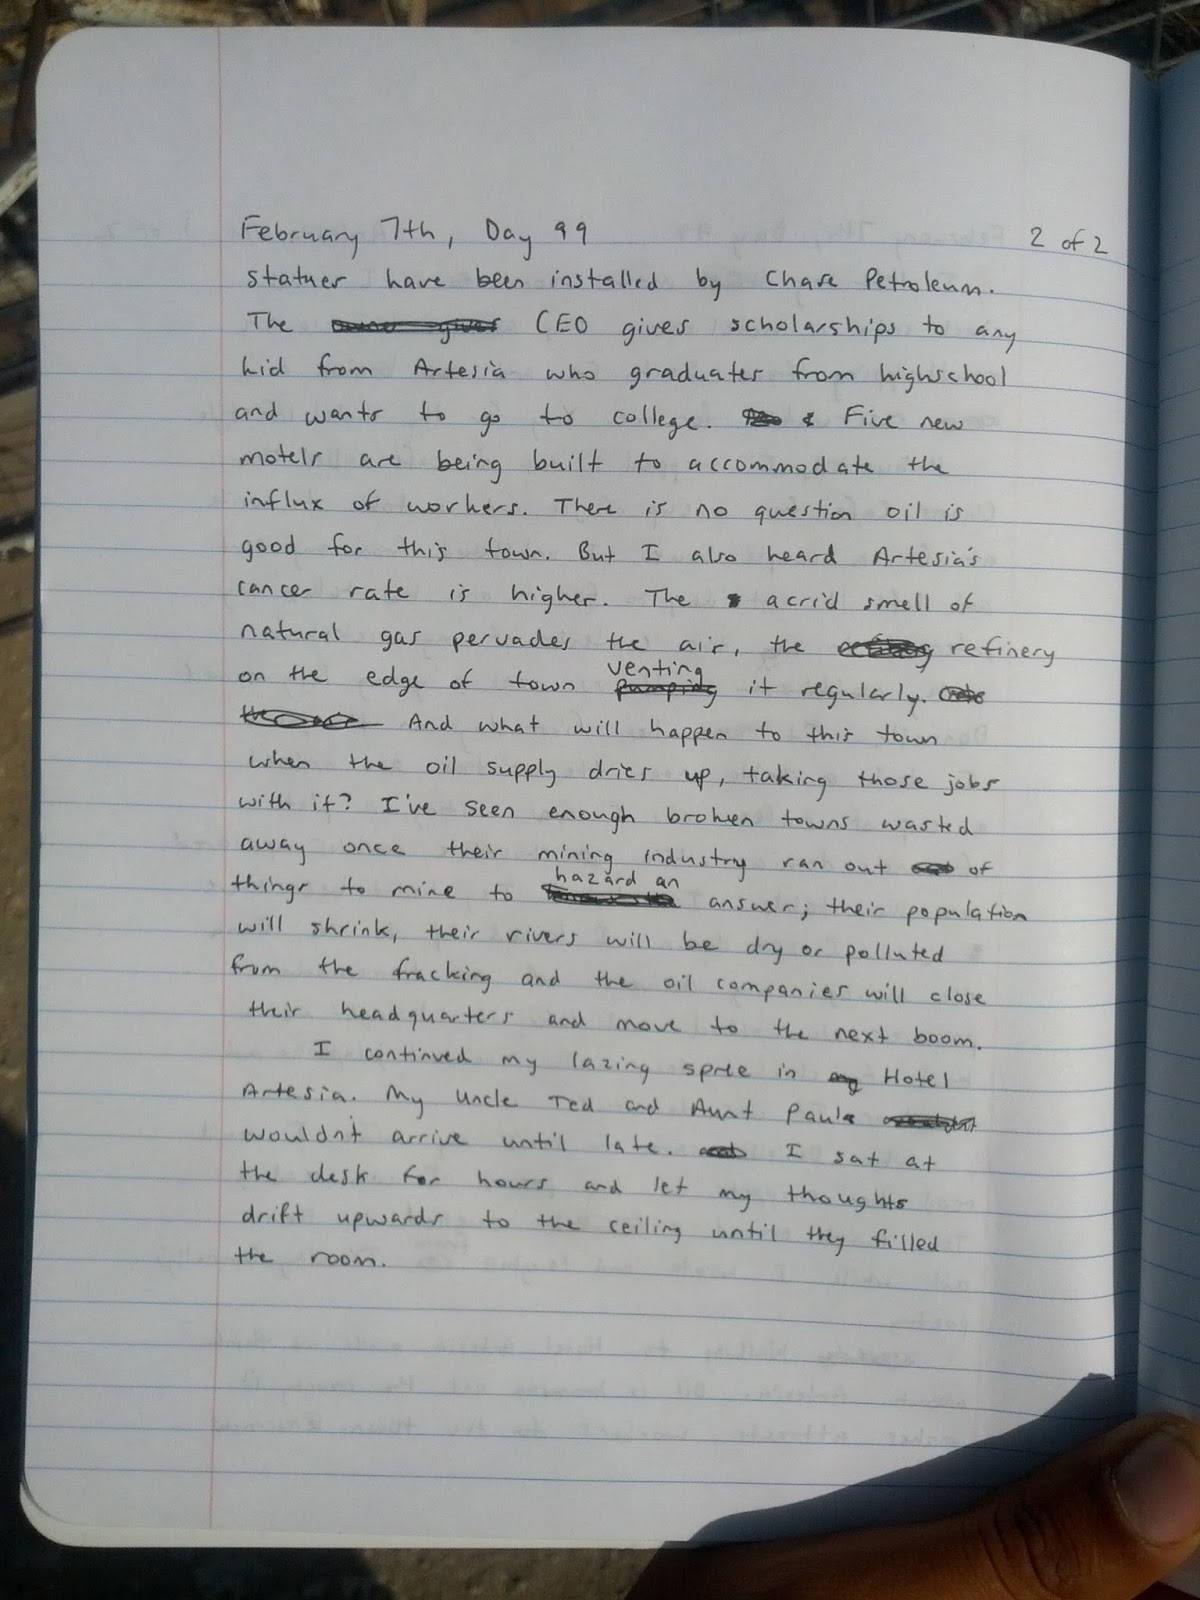 February 7th, Day 99
2 of 2
statues have been installed by Chase Petroleum.
The CEO gives scholarships to any
kid from Artesia who graduates from highschool
and wants to go to college. Five new
motels are being built to accommodate the
influx of workers. There is no question oil is
good for this town. But I also heard Artesia's
cancer rate is higher. The acrid smell of
natural gas pervades the air, the refinery
on the edge of town venting it regularly.
And what will happen to this town
when the oil supply dries up, taking those jobs
with it? I've seen enough broken towns wasted
away once their mining industry ran out of
things to mine to hazard an answer; their population
will shrink, their rivers will be dry or polluted
from the fracking and the oil companies will close
their headquarters and move to the next boom.
I continued my lazing spree in Hotel
Artesia. My Uncle Ted and Aunt Paula
wouldn't arrive until late. I sat at
the desk for hours and let my thoughts
drift upwards to the ceiling until they filled
the room.